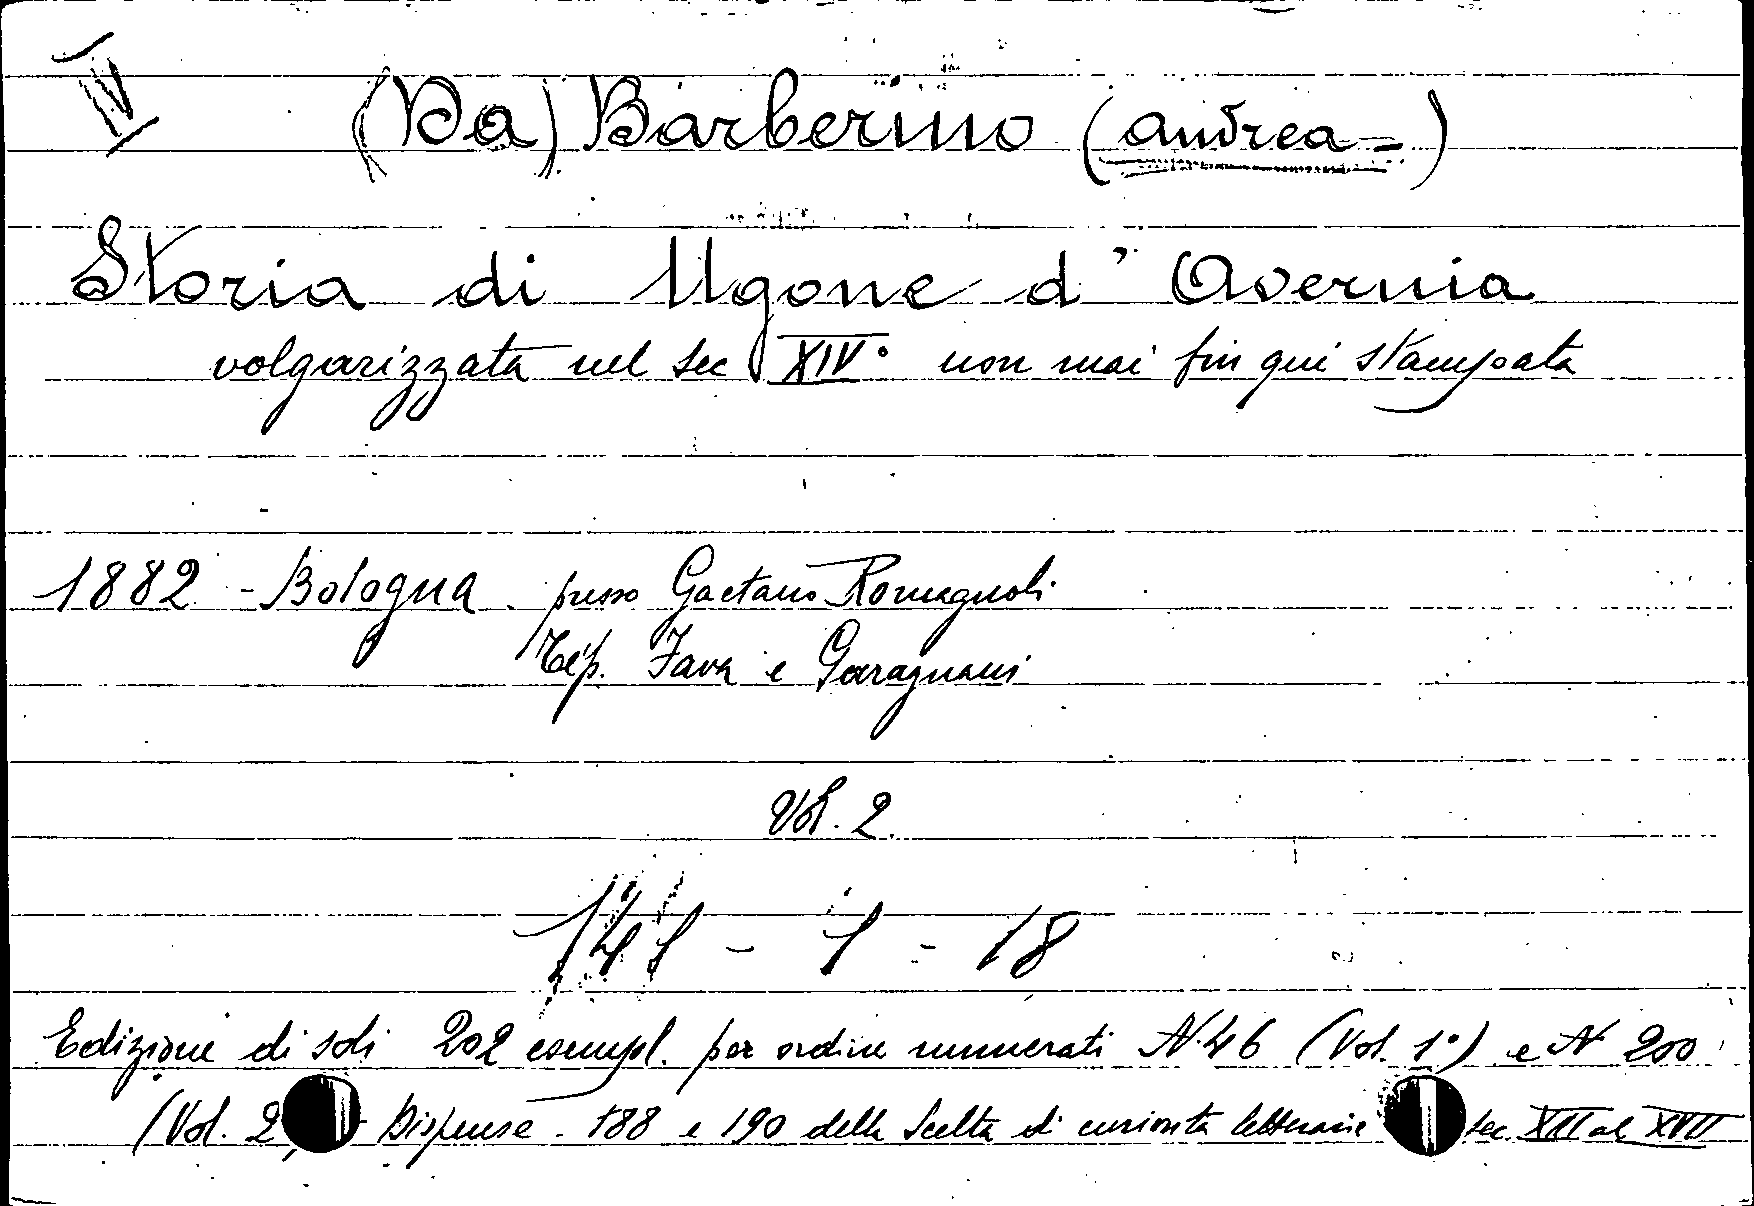 IV
(Da) Barberino (Andrea=)
Storia di Ugone d'Avernia
volgarizzata nel sec XIV° non mai fin qui stampata
1882 - Bologna presso Gaetano Romagnoli
Tip. Fava e Garagnani
Vol. 2.
141 - 1 - 18
Edizione di soli 202 esempl. per ordine numerati N. 46 (Vol. 1°) e N 200
(Vol. 2 Dispense - 188 e 190 della Scelta di curiosità letterarie sec XIII al XVII